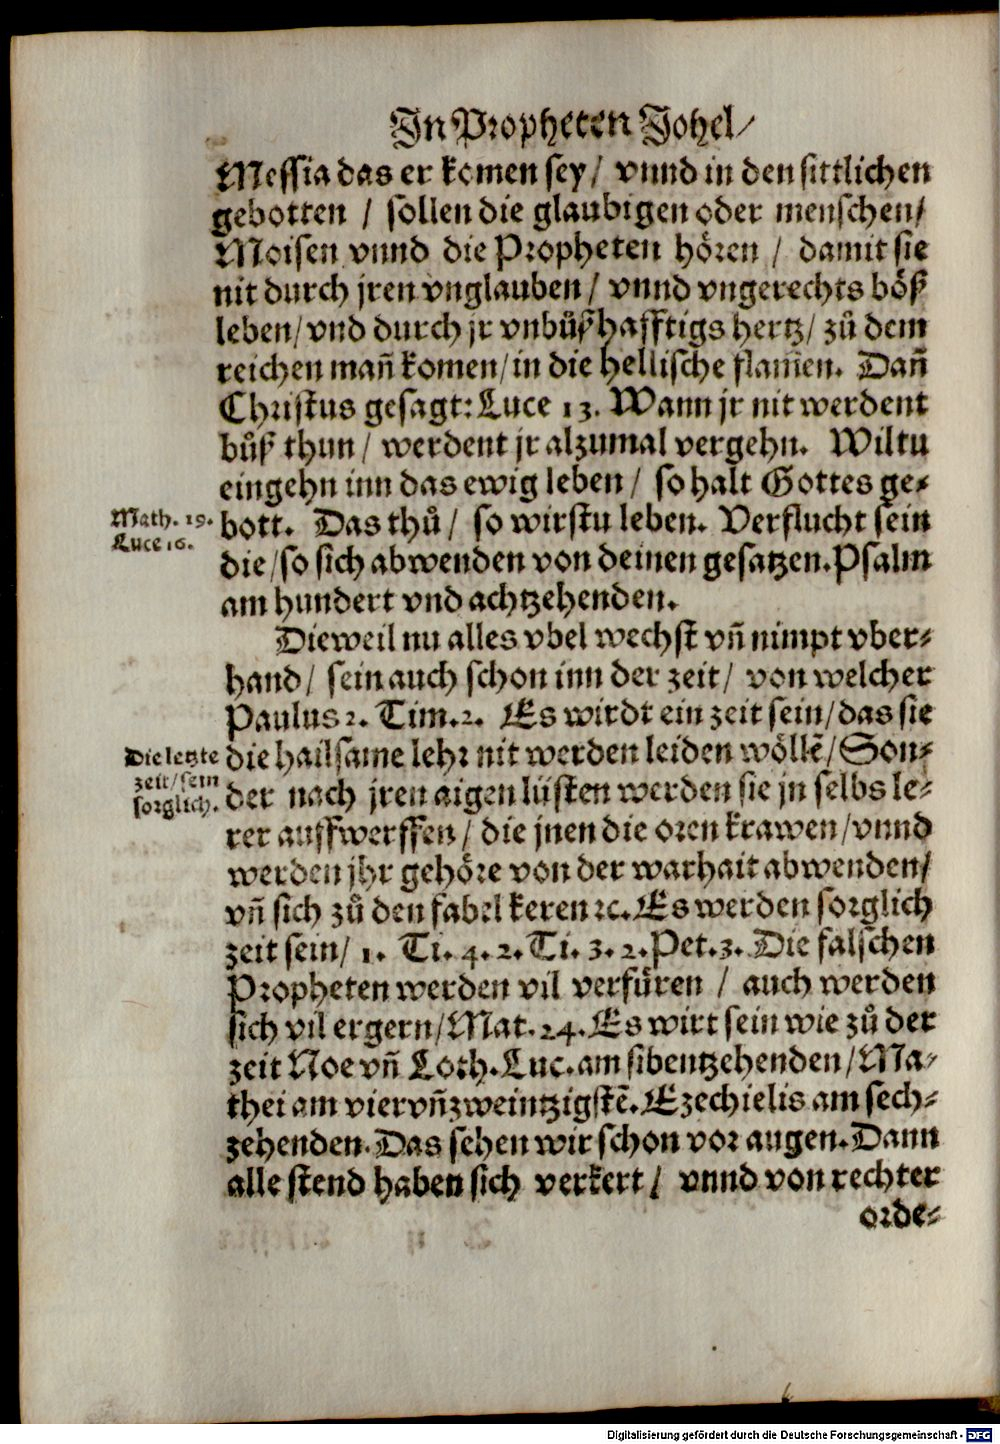 In Propheten Johel/
Messia das er komen sey/ vnnd in den sittlichen
gebotten / sollen die glaubigen oder menschen/
Moisen vnnd die Propheten hören / damit sie
nit durch jren vnglauben/ vnnd vngerechts böß
leben/ vnd durch jr vnbůßhafftigs hertz/ zů dem
reichen man̄ komen/ in die hellische flam̄en. Dan̄
Christus gesagt: Luce 13. Wann jr nit werdent
bůß thun/ werdent jr alzumal vergehn. Wiltu
eingehn inn das ewig leben/ so halt Gottes ge⸗
Math. 19.
Luce 16.
bott. Das thů/ so wirstu leben. Verflucht sein
die/ so sich abwenden von deinen gesatzen. Psalm
am hundert vnd achtzehenden.
Dieweil nu alles vbel wechst vn̄ nimpt vber⸗
hand/ sein auch schon inn der zeit/ von welcher
Paulus 2. Tim. 2. Es wirdt ein zeit sein/ das sie
Die letzte
zeit/ sein
sorglich.
die hailsame lehr nit werden leiden wöllē/ Son⸗
der nach jren aigen lüsten werden sie jn selbs le⸗
rer auffwerffen/ die jnen die oren krawen/ vnnd
werden jhr gehöre von der warhait abwenden/
vn̄ sich zů den fabel keren ꝛc. Es werden sorglich
zeit sein/ 1. Ti. 4. 2. Ti. 3. 2. Pet. 3. Die falschen
Propheten werden vil verfüren / auch werden
sich vil ergern/ Mat. 24. Es wirt sein wie zů der
zeit Noe vn̄ Loth. Luc. am sibentzehenden/ Ma⸗
thei am viervn̄zweintzigstē. Ezechielis am sech⸗
zehenden. Das sehen wir schon vor augen. Dann
alle stend haben sich verkert/ vnnd von rechter
orde⸗
Digitalisierung gefördert durch die Deutsche Forschungsgemeinschaft - DFG